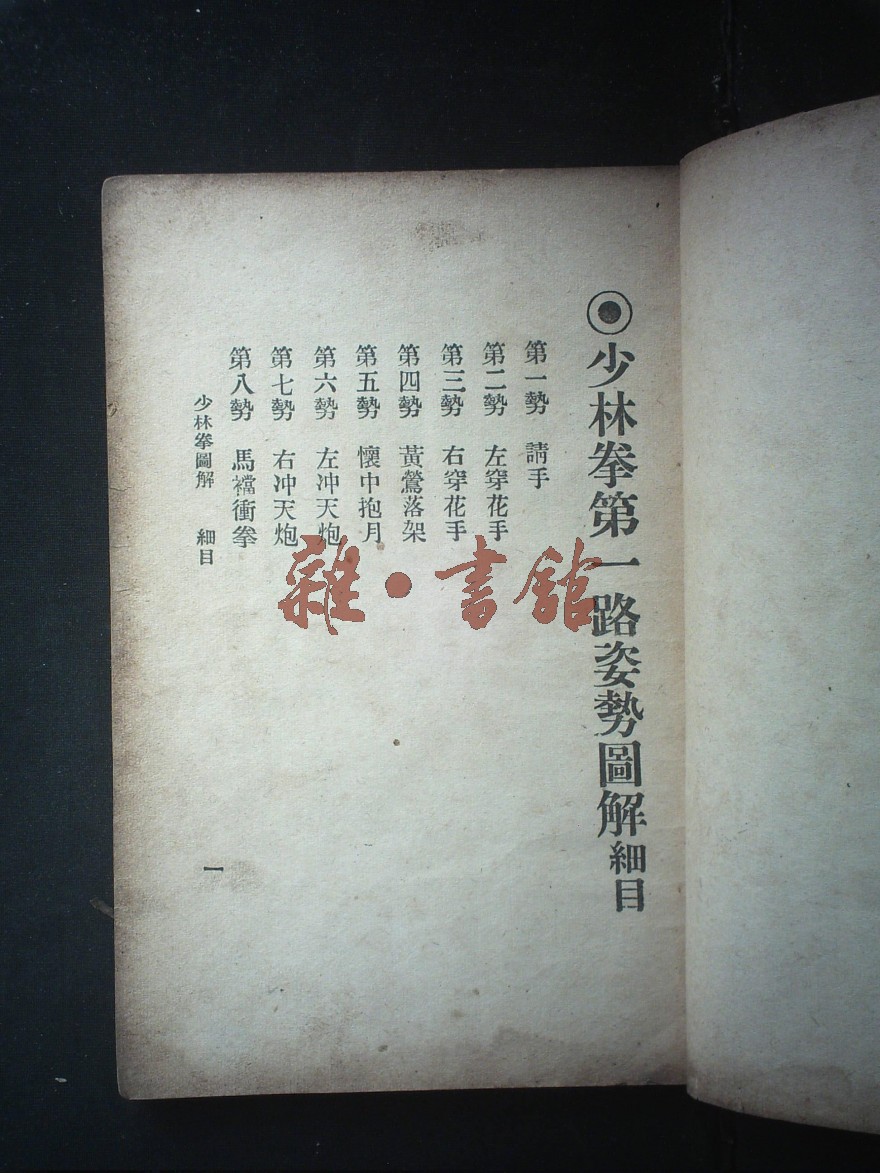 ◉少林拳第一路姿勢圖解細目
第一勢 請手
第二勢 左穿花手
第三勢 右穿花手
第四勢 黃鶯落架
第五勢 懷中抱月
第六勢 左冲天炮
第七勢 右冲天炮
第八勢 馬襠衝拳
少林拳圖解 細目
一
雜·書館